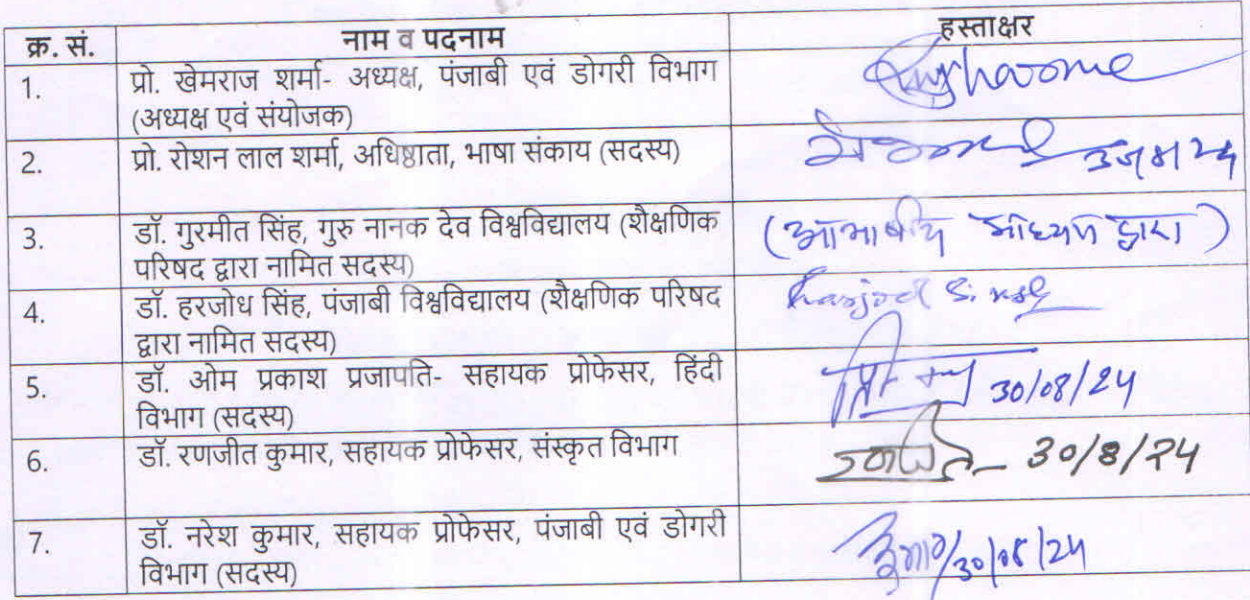 क्र. सं. नाम व पदनाम हस्ताक्षर
1. प्रो. खेमराज शर्मा- अध्यक्ष, पंजाबी एवं डोगरी विभाग
(अध्यक्ष एवं संयोजक)
2. प्रो. रोशन लाल शर्मा, अधिष्ठाता, भाषा संकाय (सदस्य)
3. डॉ. गुरमीत सिंह, गुरु नानक देव विश्वविद्यालय (शैक्षणिक
परिषद द्वारा नामित सदस्य)
(आभाषीय माध्यम द्वारा)
4. डॉ. हरजोध सिंह, पंजाबी विश्वविद्यालय (शैक्षणिक परिषद
द्वारा नामित सदस्य)
5. डॉ. ओम प्रकाश प्रजापति- सहायक प्रोफेसर, हिंदी
विभाग (सदस्य)
30/08/24
6. डॉ. रणजीत कुमार, सहायक प्रोफेसर, संस्कृत विभाग
30/8/24
7. डॉ. नरेश कुमार, सहायक प्रोफेसर, पंजाबी एवं डोगरी
विभाग (सदस्य)
30/08/24